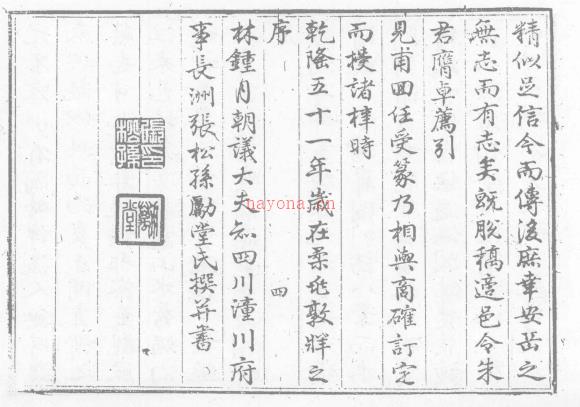 精似足信今而傳後庶幸安岳之
無志而有志矣既脫稿適邑令朱
君膺卓薦引
見甫回任受篆乃相與商確訂定
而授諸梓時
乾隆五十一年歲在柔兆敦牂之
序 四
林鍾月朝議大夫知四川潼川府
事長洲張松孫勵堂氏撰并書
張印松孫
勵堂